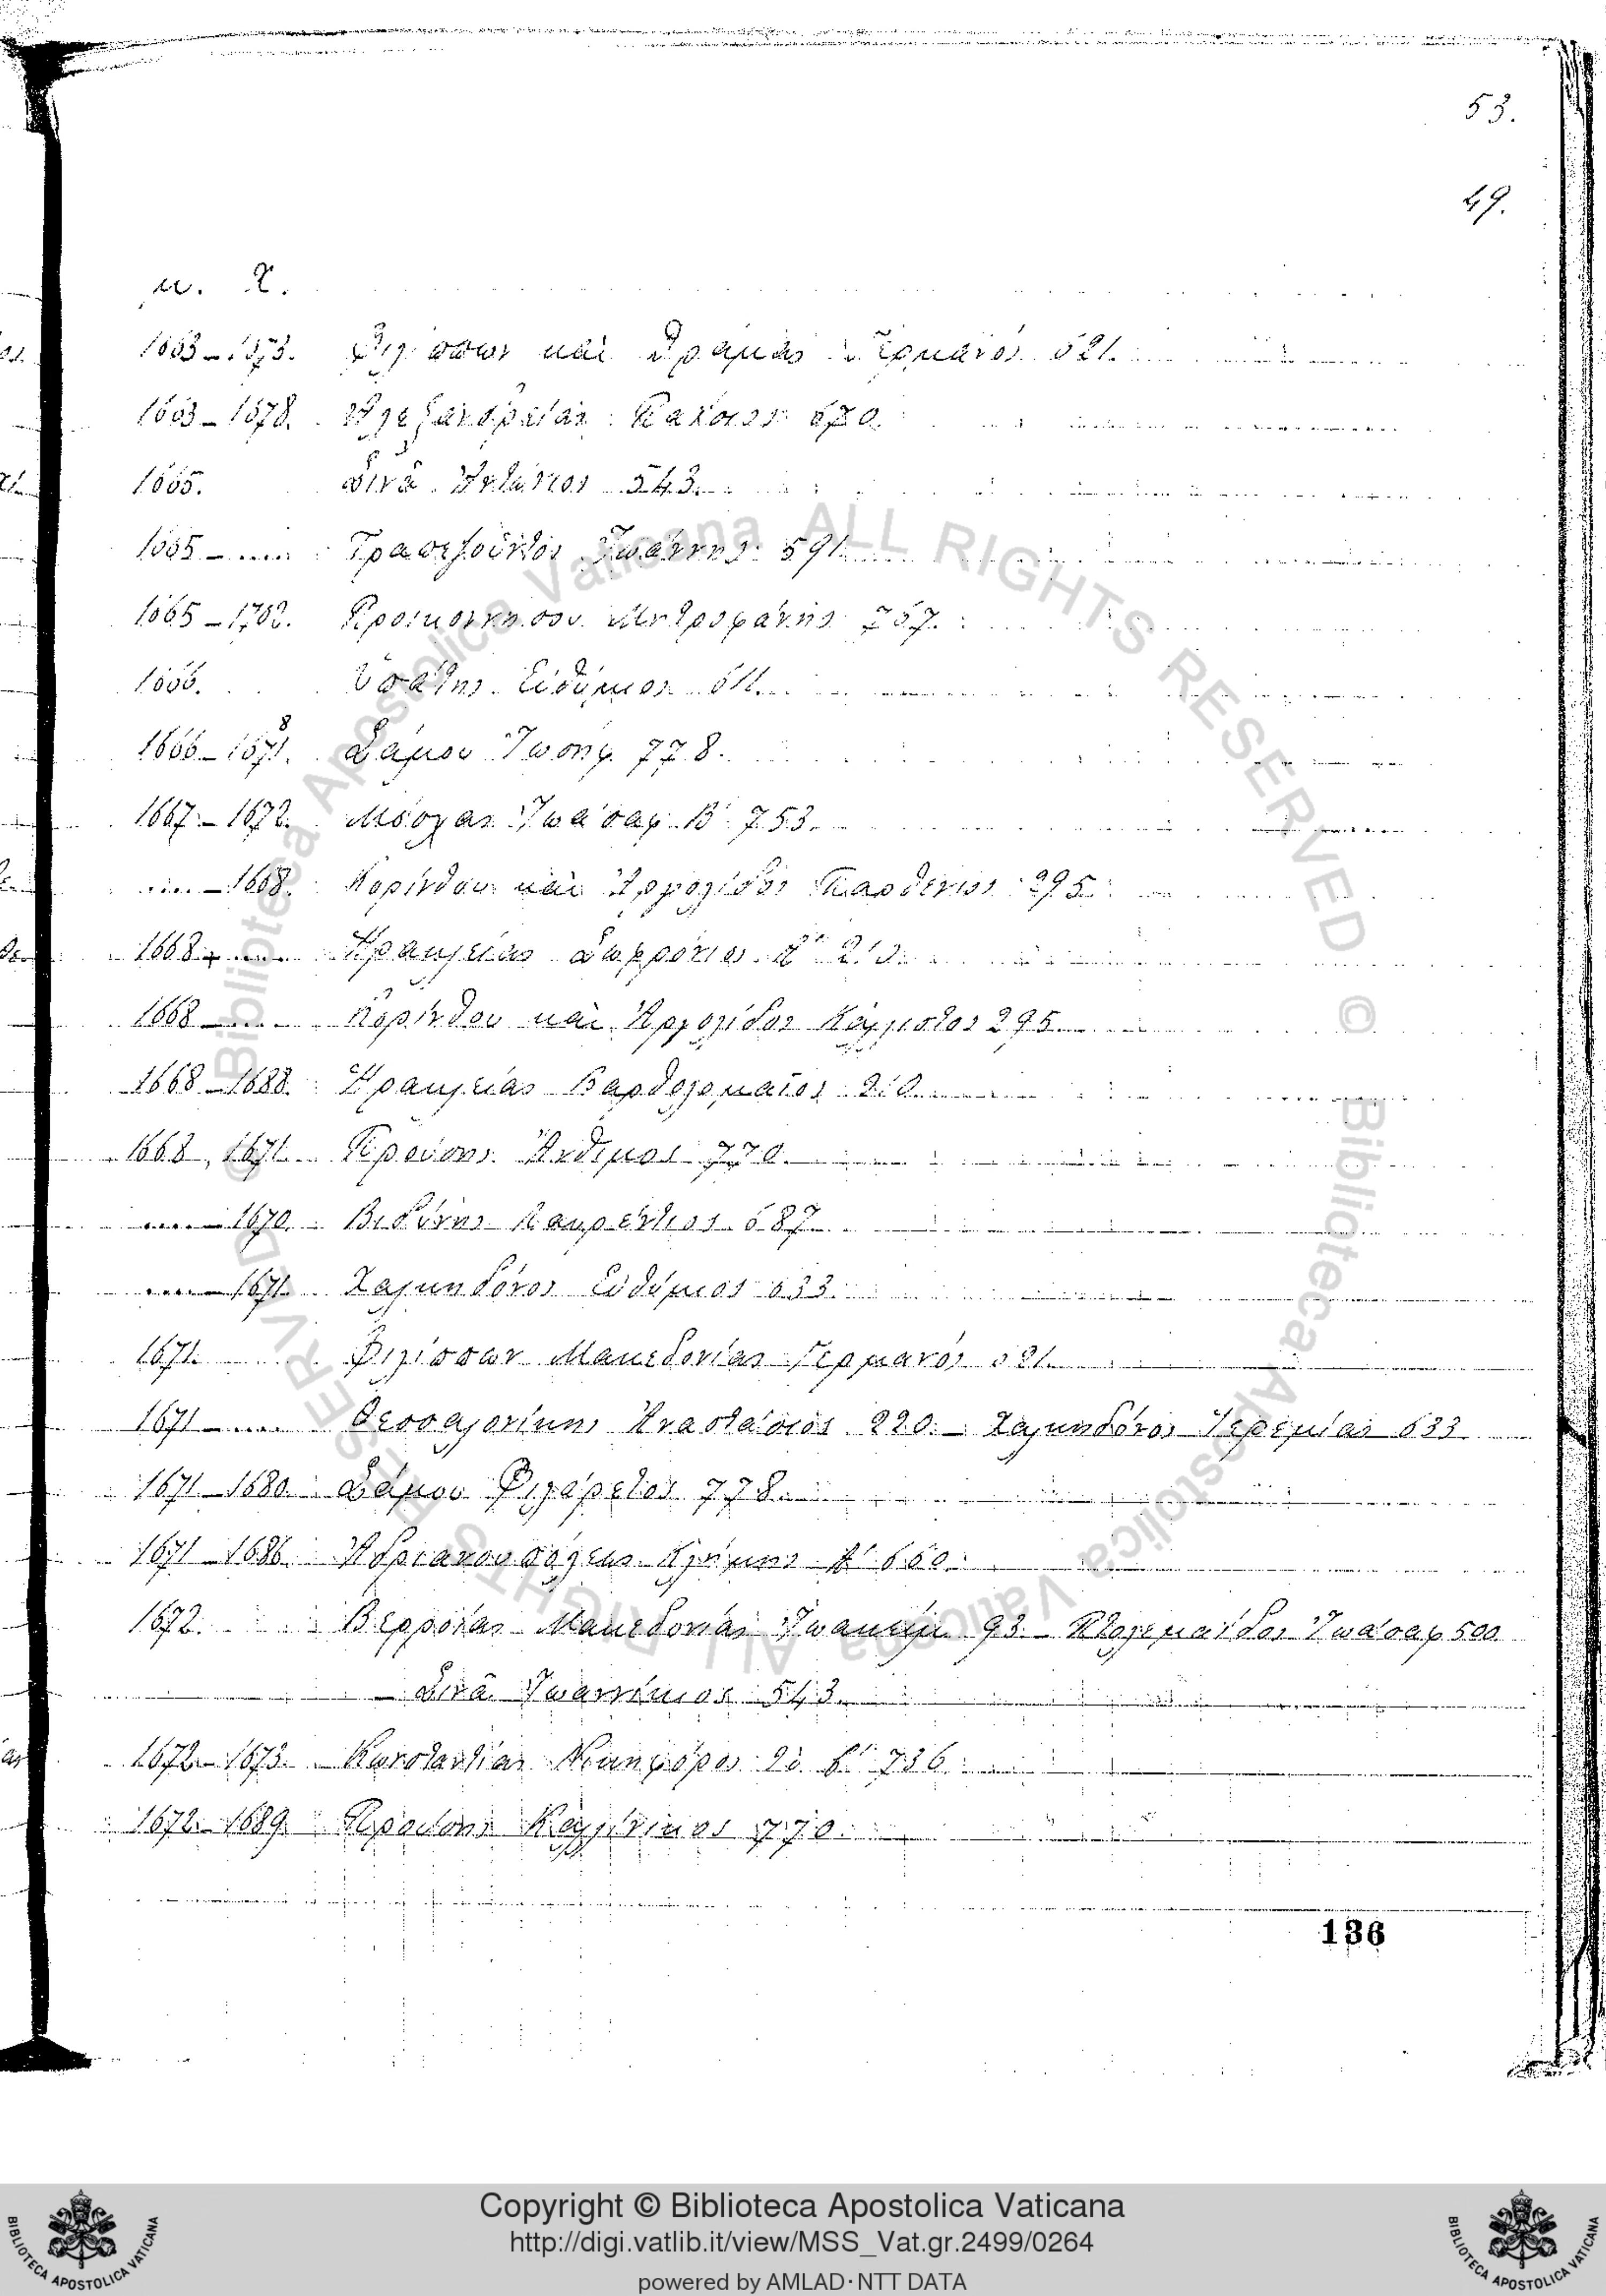 53.
49.
μ. Χ.
1663–1673. Φιλίππων καὶ Δράμας Γερμανός 621.
1663–1678. Ἀλεξανδρείας Παΐσιος 670.
1665. Σινᾶ 543.
1665– Τραπεζοῦντος Ἰωάννης 591.
1665–1702. Προικοννήσου Μητροφάνης 757.
1666. Εὐθύμιος 611.
1666–1671. 8 Σάμου Ἰωσήφ 778.
1667–1672. Μόσχας Ἰωάσαφ Β′ 753.
–1668. Κορίνθου καὶ Ἀργολίδος Παρθένιος 295.
1668– Ἡρακλείας
1668 Κορίνθου καὶ Ἀργολίδος Κάλλιστος 295
1668–1688. Ἡρακλείας Βαρθολομαῖος 210
1668, 1671. Προύσης Ἄνθιμος 770.
1670. Βιδύνης Λαυρέντιος 687.
1671. Χαλκηδόνος Εὐθύμιος 633.
1671. Φιλίππων Μακεδονίας Γερμανός 621.
1671 Θεσσαλονίκης Ἀναστάσιος 220. – Χαλκηδόνος Ἱερεμίας 633
1671–1680. Σάμου Φιλάρετος 778.
1671–1686. Ἀδριανουπόλεως Κλήμης Α′ 660.
1672. Βερροίας Μακεδονίας Ἰωακείμ 93. – Πτολεμαΐδος Ἰωάσαφ 500
– Σινᾶ Ἰωαννίκιος 543.
1672–1673. Κωνσταντίας Νικηφόρος 736.
1672–1689. Προύσης 770.
136
Copyright © Biblioteca Apostolica Vaticana
http://digi.vatlib.it/view/MSS_Vat.gr.2499/0264
powered by AMLAD·NTT DATA